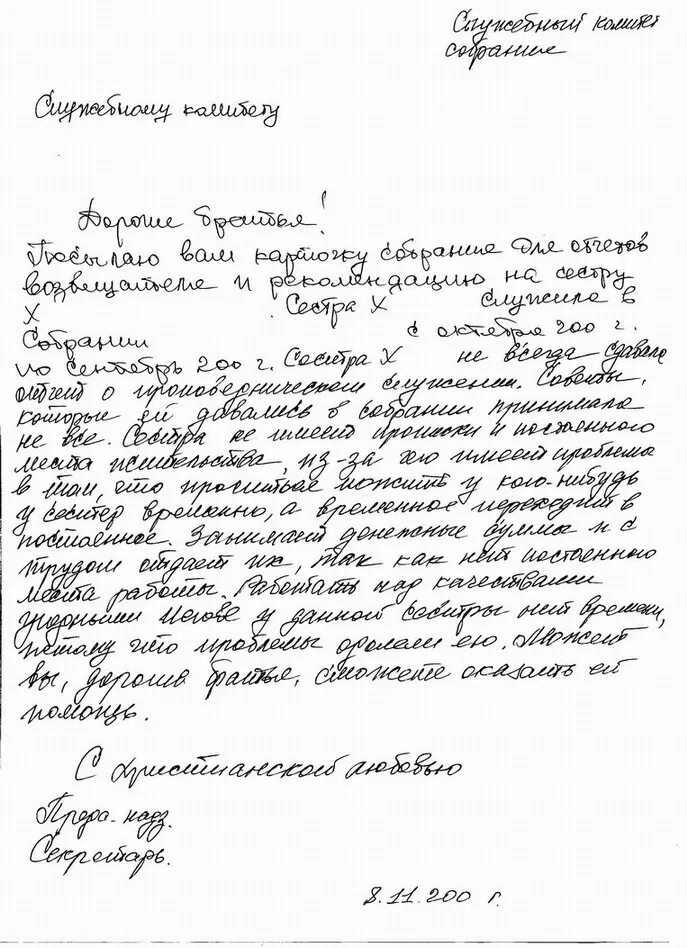 Служебный комитет
собрание
Служебному комитету
Дорогие братья!
Посылаю вам карточку собрания для отчетов
возвещателя и рекомендацию на сестру
X Сестра X служила в
Собрании с октября 200 г.
по сентябрь 200 г. Сестра X не всегда сдавала
отчет о проповедническом служении. Советы,
которые ей давались в собрании принимала
не все. Сестра не имеет прописки и постоянного
места жительства, из-за чего имеет проблема
в том, что проситься пожить у кого-нибудь
у сестер временно, а временное переходит в
постоянное. Занимает денежные суммы и с
трудом отдает их, так как нет постоянного
места работы. Работать над качествами
угодными Иегове у данной сестры нет времени,
потому что проблемы одолели ею. Может
вы, дорогие братья, сможете оказать ей
помощь.
С христианской любовью
Пред. надз.
Секретарь.
8.11.200 г.